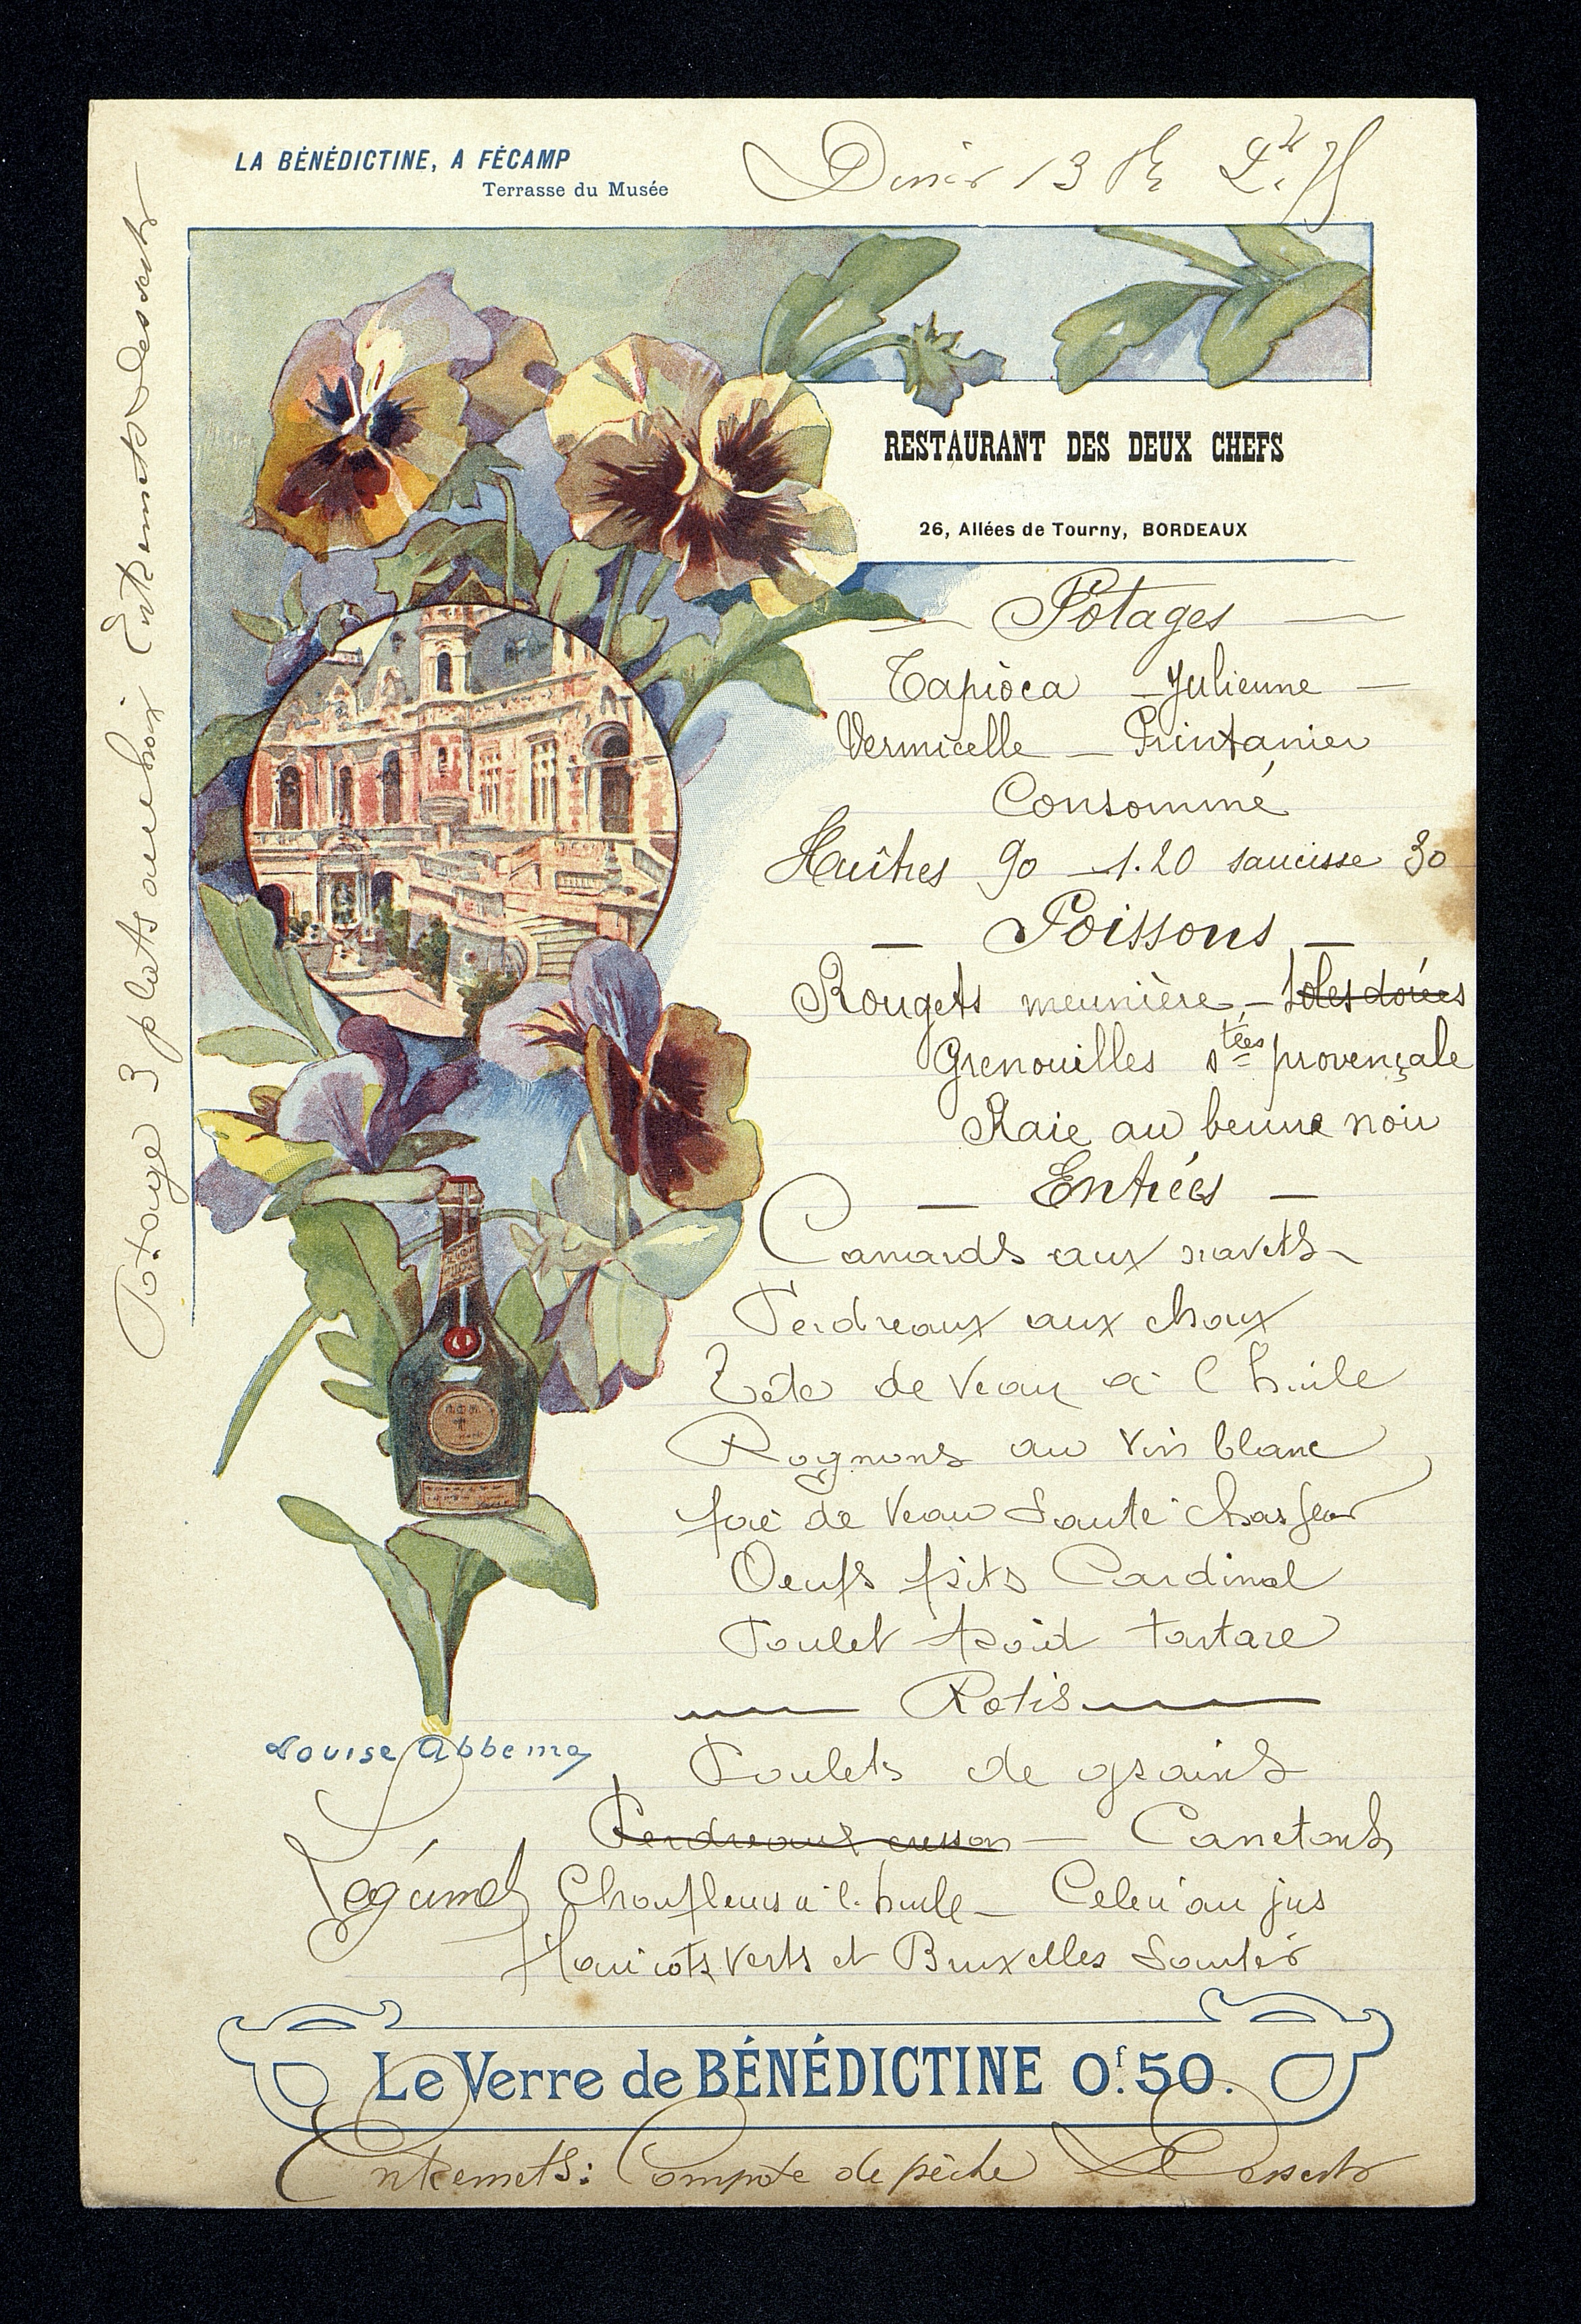 LA BÉNÉDICTINE, A FÉCAMP
Terrasse du Musée
Diner 13
RESTAURANT DES DEUX CHEFS
26, Allées de Tourny, BORDEAUX
Potages
Tapioca - Julienne -
Vermicelle - Printanier
Consommé
Huîtres 90 - 1.20 saucisse 30
- Poissons -
Rougets meunière - Soles dorées
Grenouilles stées provençale
Raie au beurre noir
- Entrées -
Canards aux navets
Perdreaux aux choux
Tete de Veau a l huile
Rognons au vin blanc
foie de Veau Sauté chasseur
Oeufs frits Cardinal
Poulet froid tartare
Rotis
Poulets de grains
Perdreaux cresson - Canetons
Légumes Choufleurs a l. huile - Celeri au jus
Haricots verts et Bruxelles Sautés
Louise Abbema
Le Verre de BÉNÉDICTINE 0f.50.
Entremets: Compote de pèche Desserts
Potage 3 plats au choix Entremets Desserts